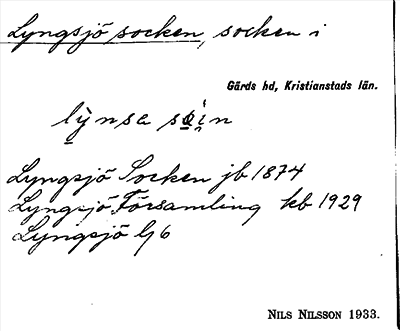 Lyngsjö socken, socken i
Gärds hd, Kristianstads län.
lỳnsa
Lyngsjö Socken jb 1874
Lyngsjö Församling kb 1929
Lyngsjö
NILS NILSSON 1933.